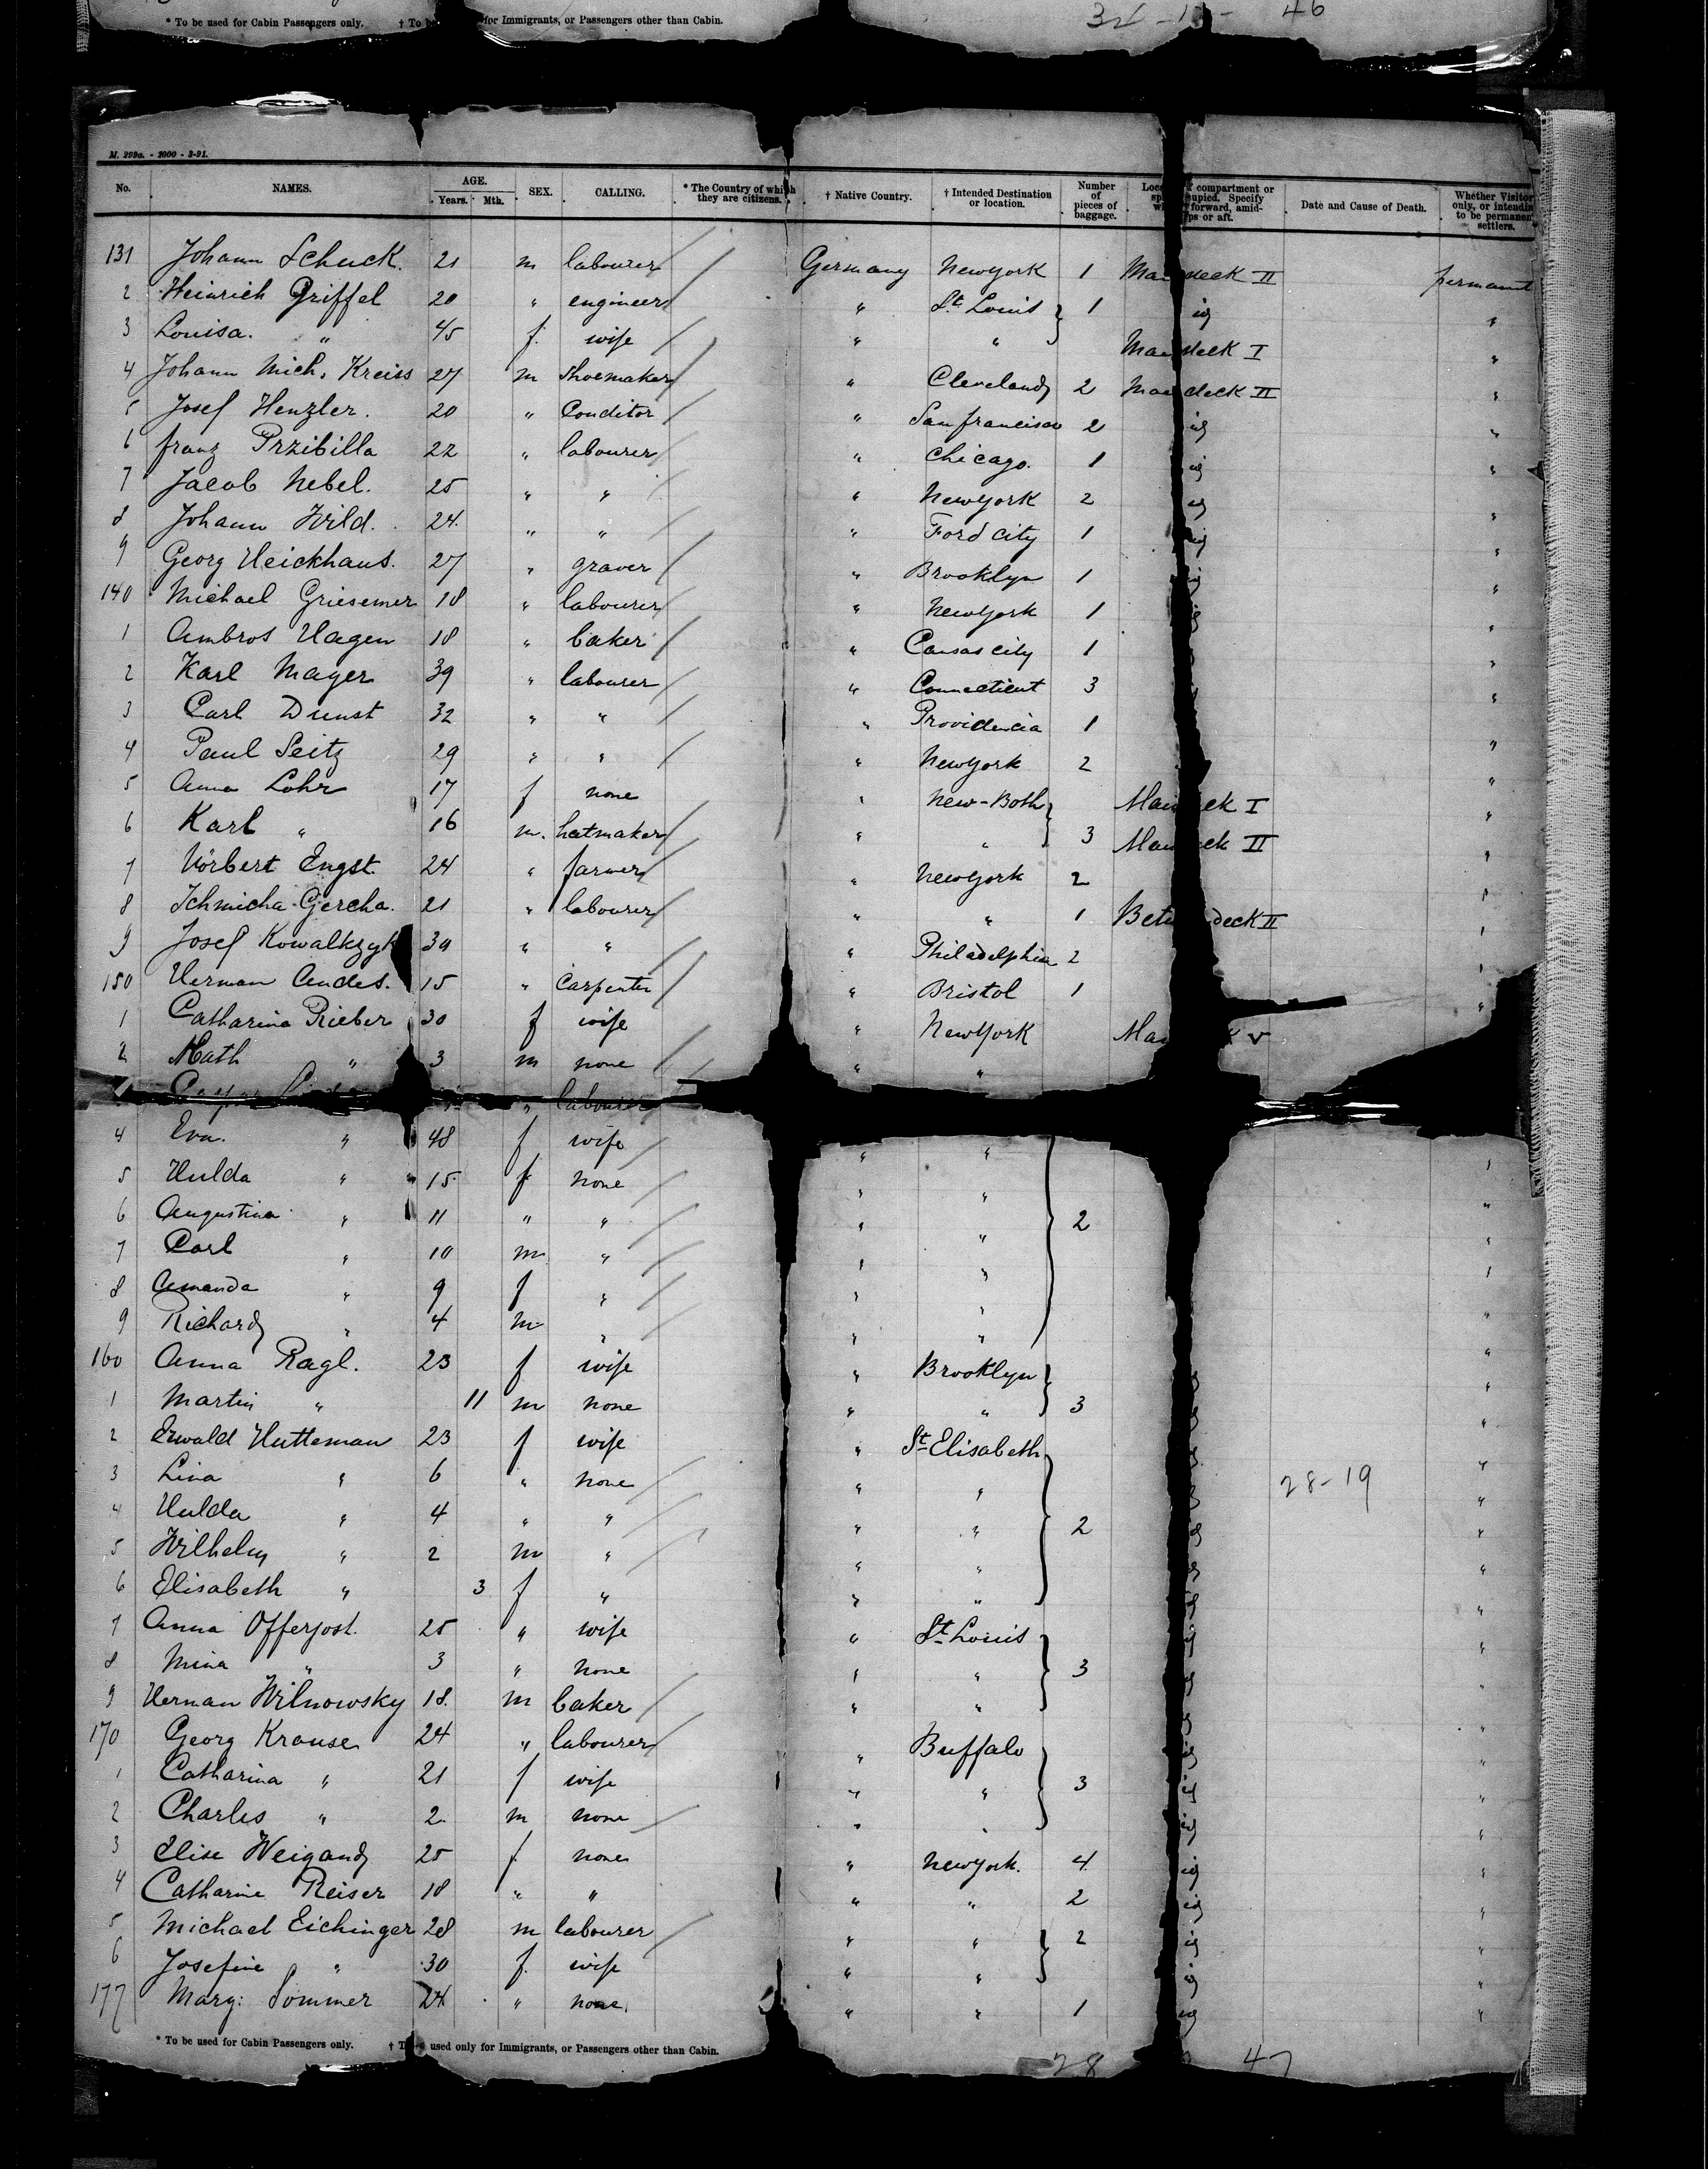 * To be used for Cabin Passengers only. † To be for Immigrants, or Passengers other than Cabin. 46
M. 299a. - 2000 - 3-91.
No. NAMES. AGE. Years. Mth. SEX. CALLING. * The Country of which they are citizens. † Native Country. † Intended Destination or location. Number of pieces of baggage. compartment or Specify forward, amid- or aft. Date and Cause of Death. Whether Visitor only, or intending to be permanent settlers.
131 Johann Schuck. 21 m labourer Germany Newyork 1 deck II permanent
2 Heinrich Griffel 20 " engineer " St. Louis 1 "
3 Louisa. " 45 f. wife " " deck I "
4 Johann Mich. Kreiss 27 m shoemaker " Cleveland 2 deck II "
5 Josef Henzler. 20 " Conditor " San francisco 2 "
6 franz Przibilla 22 " labourer " Chicago. 1 "
7 Jacob Nebel. 25 " " " Newyork 2 "
8 Johann Wild. 24. " " " Ford city 1 "
9 Georg Heickhaus. 27 " graver " Brooklyn 1 "
140 Michael Griesemer 18 " labourer " Newyork 1 "
1 Ambros Hagen 18 " baker " Cansas city 1 "
2 Karl Mayer 39 " labourer " Connecticut 3 "
3 Carl Dunst 32 " " " Providencia 1 "
4 Paul Seitz 29 " " " Newyork 2 "
5 Anna Lohr 17 f none " New-Both "
6 Karl " 16 m. hatmaker " " 3 II "
7 Nörbert Engst. 24 " farmer " Newyork 2 "
8 Schmicha Gercha. 21 " labourer " " 1 deck II "
9 Josef Kowalkzyk 39 " " " Philadelphia 2 "
150 Herman Andes. 15 " Carpenter " Bristol 1 "
1 Catharina Rieber 30 f wife " NewYork
2 Math " 3 m none " "
" labourer
4 Eva. " 48 f wife " " "
5 Hulda " 15. f none " " "
6 Augustina " 11 " " " " 2 "
7 Carl " 10 m " " " "
8 Amanda " 9 f " " " "
9 Richard " 4 m " " " "
160 Anna Ragl. 23 f wife " Brooklyn "
1 Martin " 11 m none " " 3 "
2 Ewald Hutteman 23 f wife " St. Elisabeth "
3 Lina " 6 " none " " 28-19 "
4 Hulda " 4 " " " " 2 "
5 Wilhelm " 2 m " " " "
6 Elisabeth " 3 f " " " "
7 Anna Offerjost. 25 " wife " St. Louis "
8 Mina " 3 " none " " 3 "
9 Herman Wilnowsky 18. m baker " " "
170 Georg Krause 24 " labourer " Buffalo "
1 Catharina " 21 f wife " " 3 "
2 Charles " 2. m none " " "
3 Elise Weigand 25 f none " Newyork. 4 "
4 Catharine Reiser 18 " " " " 2 "
5 Michael Eichinger 28 m labourer " " 2 "
6 Josefine " 30 f. wife " " "
177 Marg: Sommer 24 " none. " " 1 "
* To be used for Cabin Passengers only. † used only for Immigrants, or Passengers other than Cabin. 28 47